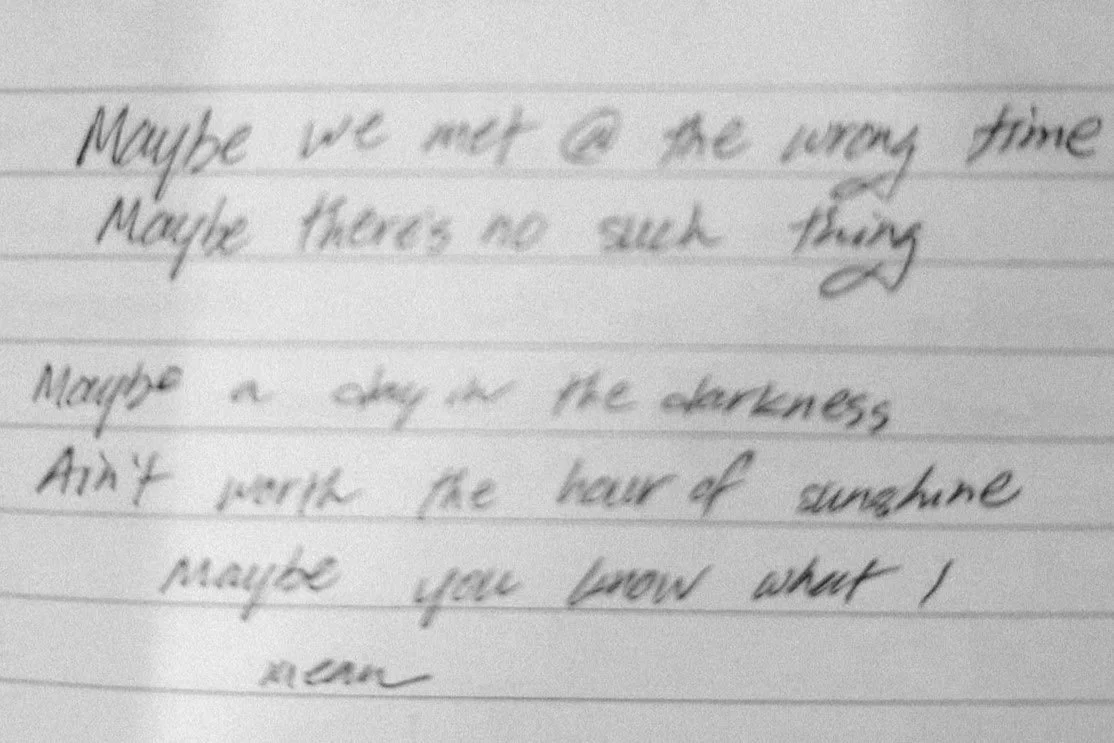 Maybe we met @ the wrong time
Maybe there's no such thing
Maybe a day in the darkness
Ain't worth the hour of sunshine
Maybe you know what I
mean